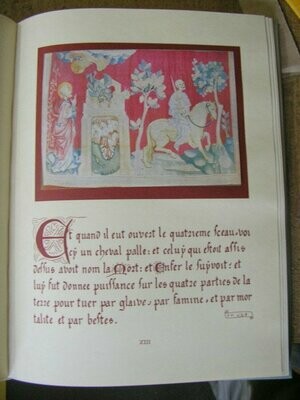 Et quand il eut ouvert le quatrieme sceau, voi
cy un cheval palle: et celuy qui estoit assis
dessus avoit nom la Mort: et Enfer le suyvoit: et
luy fut donnee puissance sur les quatre parties de la
terre pour tuer par glaive, par famine, et par mor
talite et par bestes.
XIII